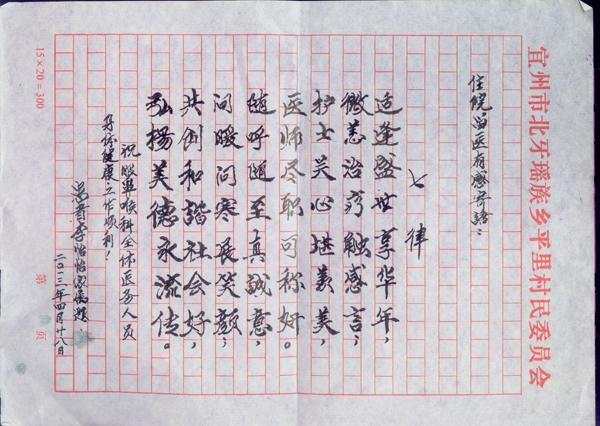 宜州市北牙瑶族乡平里村民委员会
住院留医有感寄語：
七律
适逢盛世享华年，
微恙治疗触感言；
护士关心堪羡美，
医师尽职可称好。
随呼随至真誠意，
问暖问寒展笑颜；
共創和諧社会好，
弘揚美德永流传。
祝眼鼻喉科全体医务人员
身体健康工作顺利！
患者李
二〇一三年四月廿八日
第 页
15×20=300